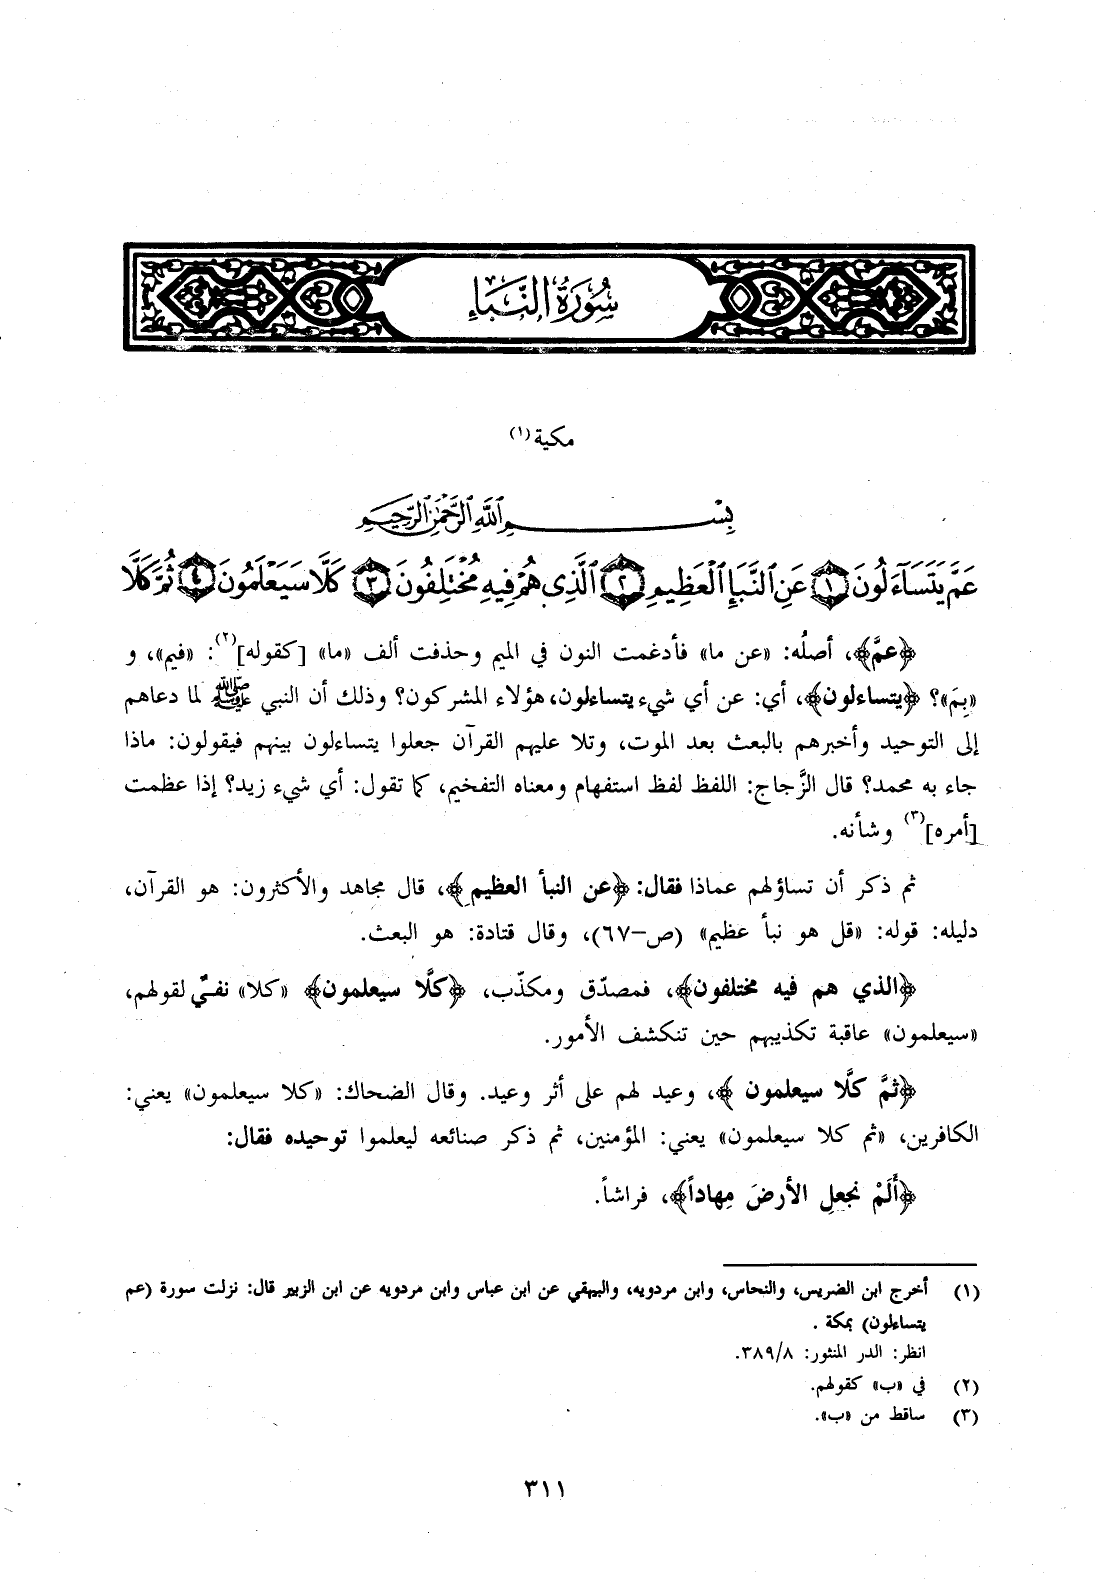 سُورَةُ النَّبَإِ
مكية(١)
بِسْمِ اللَّهِ الرَّحْمَٰنِ الرَّحِيمِ
عَمَّ يَتَسَآءَلُونَ ١ عَنِ النَّبَإِ الْعَظِيمِ ٢ الَّذِي هُمْ فِيهِ مُخْتَلِفُونَ ٣ كَلَّا سَيَعْلَمُونَ ٤ ثُمَّ كَلَّا
﴿عمَّ﴾، أصلُه: «عن ما» فأدغمت النون في الميم وحذفت ألف «ما» [كقوله](٢): «فيم»، و
«بِمَ»؟ ﴿يتساءلون﴾، أي: عن أي شيء يتساءلون، هؤلاء المشركون؟ وذلك أن النبي ﷺ لما دعاهم
إلى التوحيد وأخبرهم بالبعث بعد الموت، وتلا عليهم القرآن جعلوا يتساءلون بينهم فيقولون: ماذا
جاء به محمد؟ قال الزَّجاج: اللفظ لفظ استفهام ومعناه التفخيم، كما تقول: أي شيء زيد؟ إذا عظمت
[أمره](٣) وشأنه.
ثم ذكر أن تساؤلهم عماذا فقال: ﴿عن النبأ العظيم﴾، قال مجاهد والأكثرون: هو القرآن،
دليله: قوله: «قل هو نبأ عظيم» (ص-٦٧)، وقال قتادة: هو البعث.
﴿الذي هم فيه مختلفون﴾، فمصدّق ومكذّب، ﴿كلَّا سيعلمون﴾ «كلا» نفيٌ لقولهم،
«سيعلمون» عاقبة تكذيبهم حين تنكشف الأمور.
﴿ثمَّ كلَّا سيعلمون﴾، وعيد لهم على أثر وعيد. وقال الضحاك: «كلا سيعلمون» يعني:
الكافرين، «ثم كلا سيعلمون» يعني: المؤمنين، ثم ذكر صنائعه ليعلموا توحيده فقال:
﴿أَلَمْ نجعلِ الأرضَ مِهاداً﴾، فراشاً.
(١) أخرج ابن الضريس، والنحاس، وابن مردويه، والبيهقي عن ابن عباس وابن مردويه عن ابن الزبير قال: نزلت سورة (عم
يتساءلون) بمكة .
انظر: الدر المنثور: ٣٨٩/٨.
(٢) في «ب» كقولهم.
(٣) ساقط من «ب».
٣١١